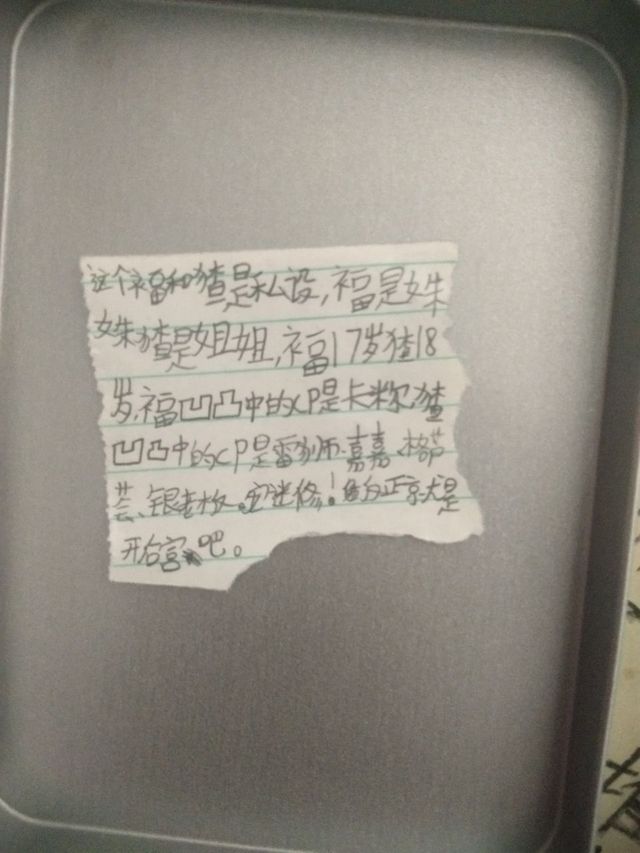 这个福和猹是私设,福是妹
妹猹是姐姐,福17岁猹18
岁,福凹凸中的CP是卡米尔,猹
凹凸中的CP是雷狮、嘉嘉、格
芸、银老板。安迷修!
开后宫吧。